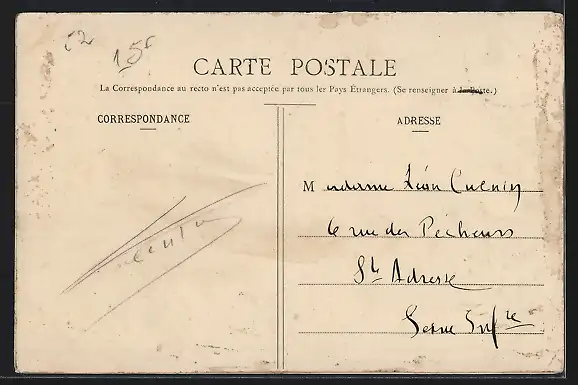 52
15F
CARTE POSTALE
La Correspondance au recto n'est pas acceptée par tous les Pays Étrangers. (Se renseigner à la Poste.)
CORRESPONDANCE
ADRESSE
Madame Léon Cuenin
6 rue des Pêcheurs
Ste Adresse
Seine Infre